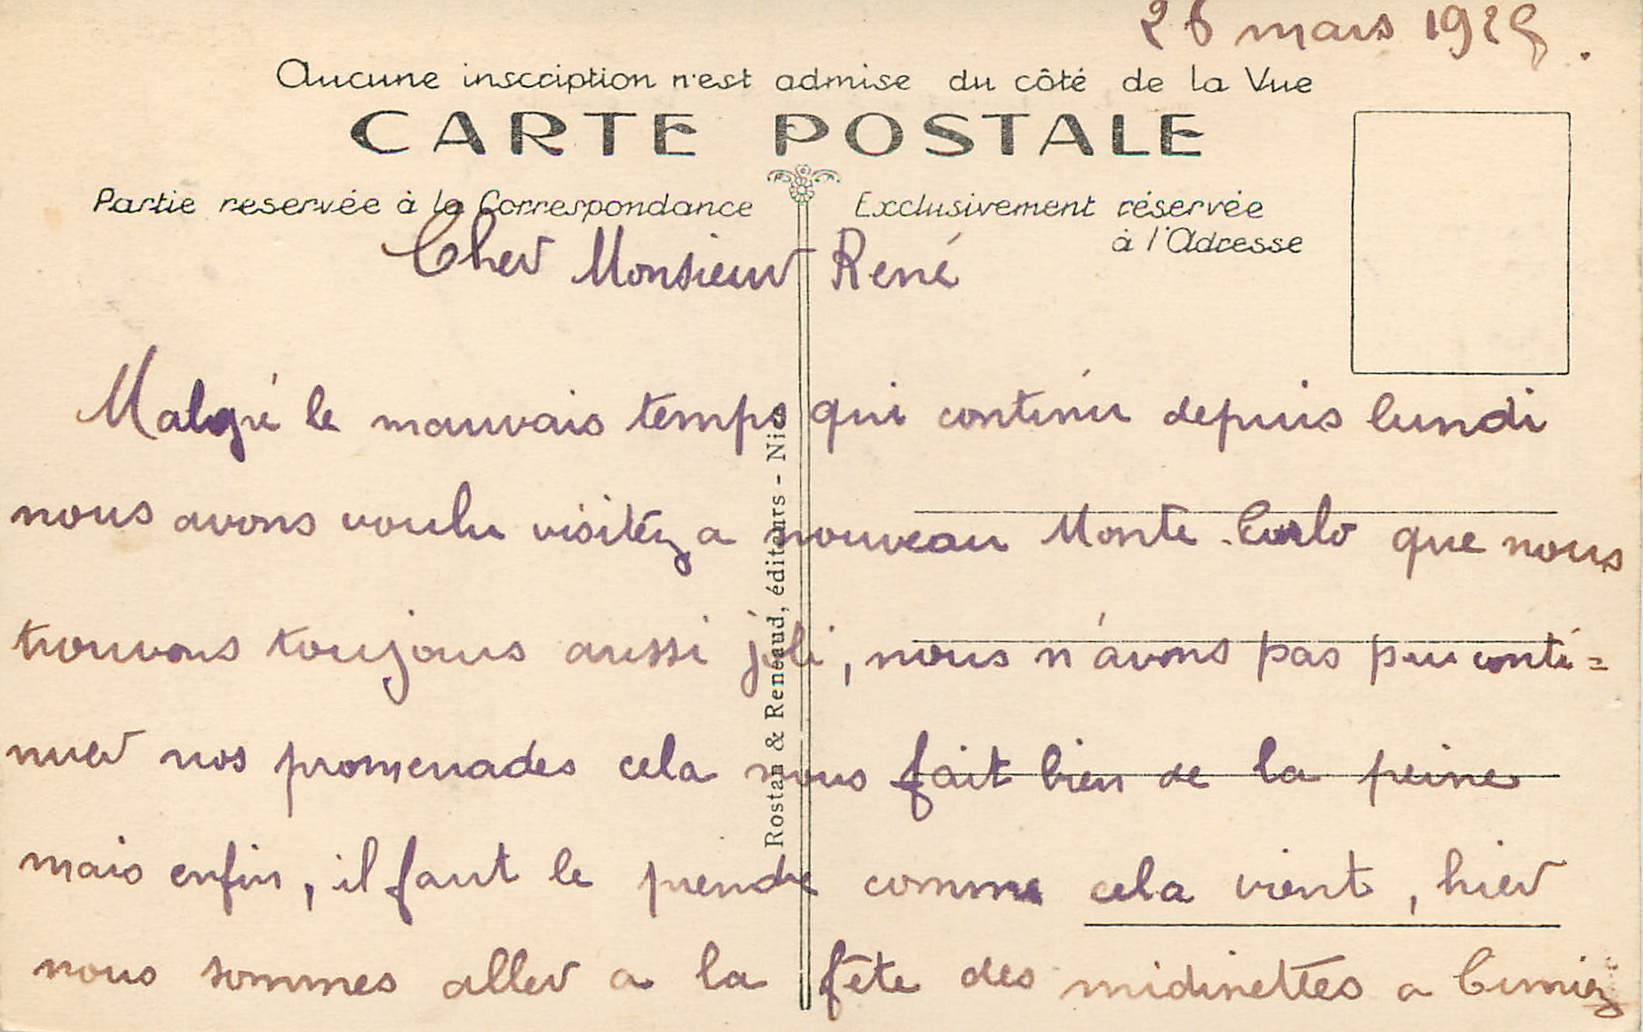 26 mars 1928.
Aucune inscription n'est admise du côté de la Vue
CARTE POSTALE
Partie reservée à la Correspondance
Exclusivement réservée
à l'Adresse
Cher Monsieur René
Malgré le mauvais temps qui continu depuis lundi
nous avons voulu visitéz a nouveau Monte-Carlo que nous
trouvons toujours aussi joli, nous n'avons pas pu conti=
nuer nos promenades cela nous fait bien de la peine
mais enfin, il faut le prendre comme cela vient, hier
nous sommes aller a la fête des midinettes a Cimiez
Rostan & Reneaud, éditeurs - Nice